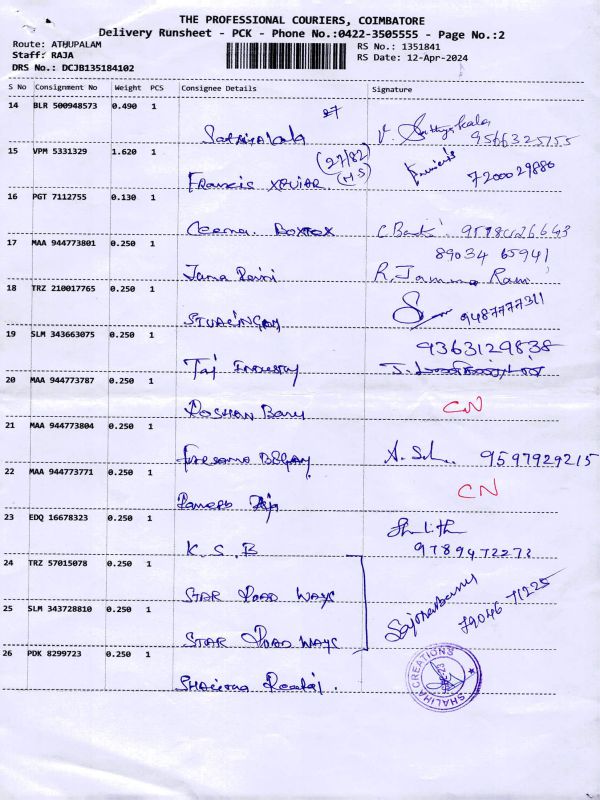 THE PROFESSIONAL COURIERS, COIMBATORE
Delivery Runsheet - PCK - Phone No.:0422-3505555 - Page No.:2
Route: ATHUPALAM RS No.: 1351841
Staff: RAJA RS Date: 12-Apr-2024
DRS No.: DCJB135184102
S No Consignment No Weight PCS Consignee Details Signature
14 BLR 500948573 0.490 1
9566325155
15 VPM 5331329 1.620 1 (27/82)
Francis (HS) 7200029880
16 PGT 7112755 0.130 1
17 MAA 944773801 0.250 1 89034 65941
Jana Rani R. Jamma Rani
18 TRZ 210017765 0.250 1
9487777311
19 SLM 343663075 0.250 1 9363129838
Taj Industry
20 MAA 944773787 0.250 1
Roshan Banu CN
21 MAA 944773804 0.250 1
9597929215
22 MAA 944773771 0.250 1 CN
Ramesh Raja
23 EDQ 16678323 0.250 1
K. S. B 9789472272
24 TRZ 57015078 0.250 1
STAR ROAD WAYS
79046 71225
25 SLM 343728810 0.250 1
STAR ROAD WAYS
26 PDK 8299723 0.250 1
SHALIMA CREATIONS